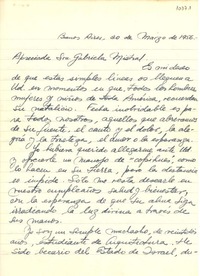 Buenos Aires, 20 de Marzo de 1956.
Apreciada Sra Gabriela Mistral
Es mi deseo
de que estas simples lineas os lleguen a
Ud. en momentos en que, todos los hombres
mujeres y niños de toda América, recuerdan
su natalicio. Fecha inolvidable es pa
ra todos nosotros, aquellos que abrevamos
de su fuente, el canto y el dolor, la ale-
gría y la tristeza, el amor o la esperanza.
Yo hubiera querido allegarme hasta Ud
y ofrecerle un manojo de "copihues", como
lo hacen en su tierra, pero la distancia
es impide. Solo me resta desearle en
nuestro cumpleaños salud y bienestar,
con la esperanza de que su alma siga
irradiando la luz divina a través de
sus manos.
Yo soy un simple muchacho, de veintiun
años, estudiante de Arquitectura. He
sido becario del Estado de Israel, du-